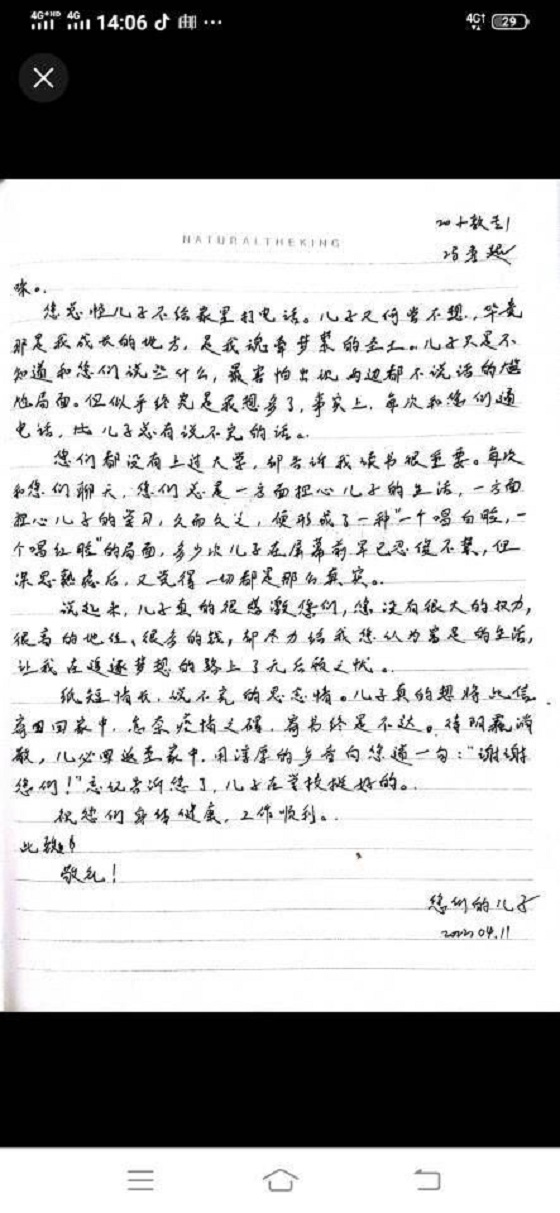 14:06
29
20十数 1
NATURALTHEKING
咪。
您总怪儿子不给家里打电话。儿子又何尝不想,毕竟
那是我成长的地方,是我魂牵梦萦的圣土。儿子只是不
知道和您们说些什么,最害怕出现两边都不说话的尴
尬局面。但似乎终究是我想多了,事实上,每次和您们通
电话,儿子总有说不完的话。
您们都没有上过大学,却告诉我读书很重要。每次
和您们聊天,您们总是一方面担心儿子的生活,一方面
担心儿子的学习,久而久之,便形成了一种“一个唱白脸,一
个唱红脸”的局面,多少次儿子在屏幕前早已忍俊不禁,但
深思熟虑后,又觉得一切都是那么真实。
说起来,儿子真的很感激您们,您没有很大的权力,
很高的地位、很多的钱,却尽力给我您认为富足的生活,
让我在追逐梦想的路上了无后顾之忧。
纸短情长,说不完的思念情。儿子真的想将此信
寄回家中,怎奈疫情之碍,寄书终是不达。待阴霾消
散,儿必回返至家中,用淳厚的乡音向您道一句:“谢谢
您们!”忘记告诉您了,儿子在学校挺好的。
祝您们身体健康,工作顺利。
此致
敬礼!
您们的儿子
2022.04.11